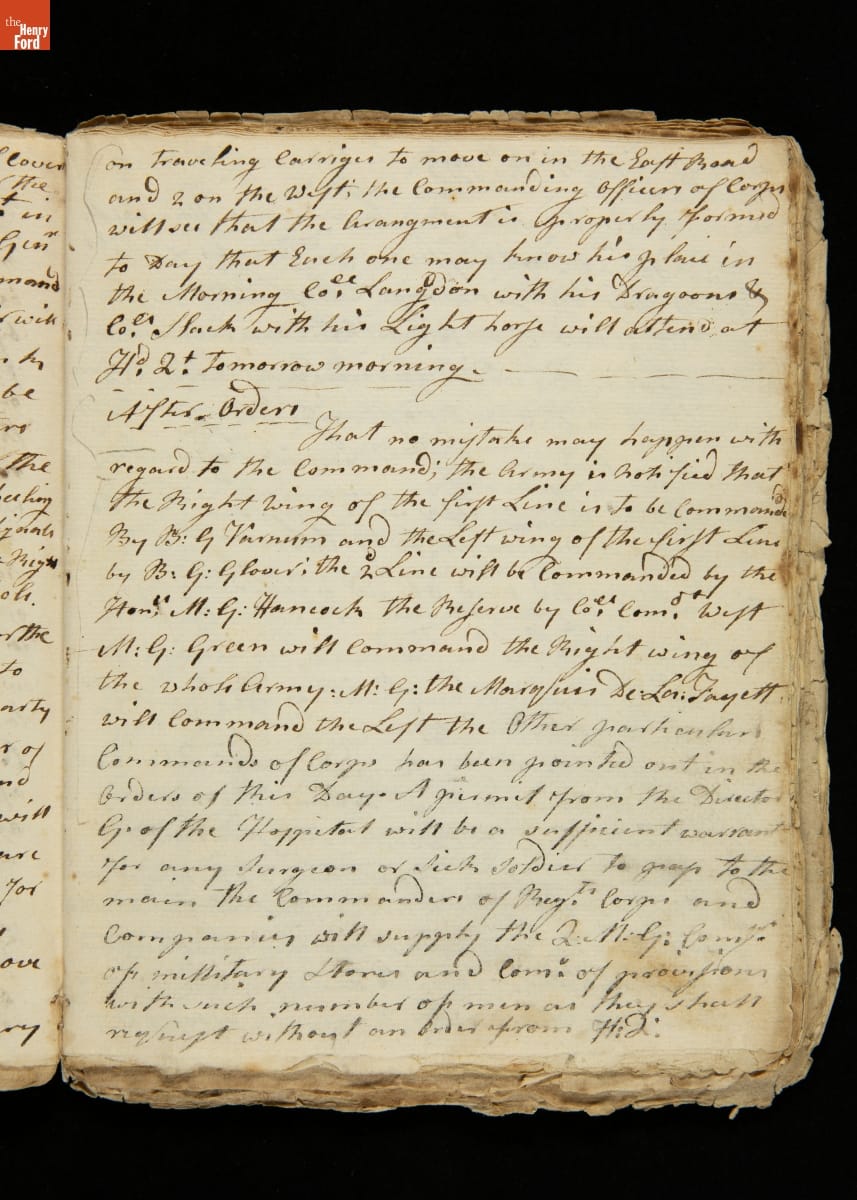 the
Henry
Ford
on traveling Carriges to move on in the East Road
and 2 on the West; the Commanding Officers of Corps
will see that the Arangment is properly formed
to Day that Each one may know his place in
the Morning Coll. Langdon with his Dragoons &
Coll. Slack with his Light horse will attend at
Hd. Qt. Tomorrow morning.
After Orders
That no mistake may happen with
regard to the Command; the Army is Notified that
the Right Wing of the first Line is to be Commanded
By B: G Varnum and the Left wing of the first Line
by B: G: Glover; the 2d Line will be Commanded by the
Honll. M: G: Hancock the Reserve by Coll. Comdt. West
M: G: Green will Command the Right wing of
the whole Army: M: G: the Marquis De: La: Fayett
will Command the Left the Other particular
Commands of Corps has been pointed out in the
Orders of this Day. A permit from the Director
G: of the Hospital will be a sufficient warrant
for any Surgeon or Sick Soldier to pass to the
main the Commanders of Regts. Corps and
Companies will supply the Q: M: G:
of millitary Stores and Comy. of provisions
with such number of men as they shall
request without an order from H: Q:
Gen
mand
will
be
the
to
arty
r of
will
for
ove